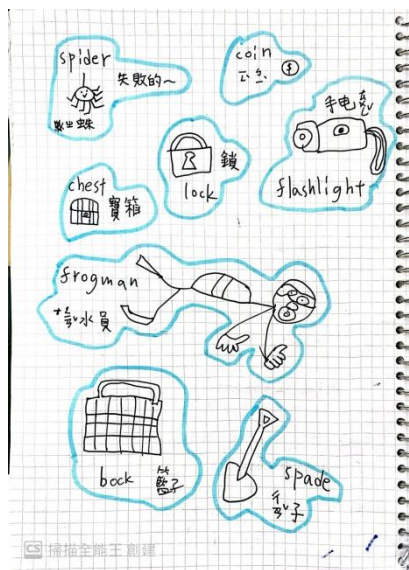 spider
失敗的~
蛛
coin
$
手电
flashlight
鎖
lock
chest
寶箱
frogman
水員
bock
籃子
spade
子
CS 掃描全能王 創建